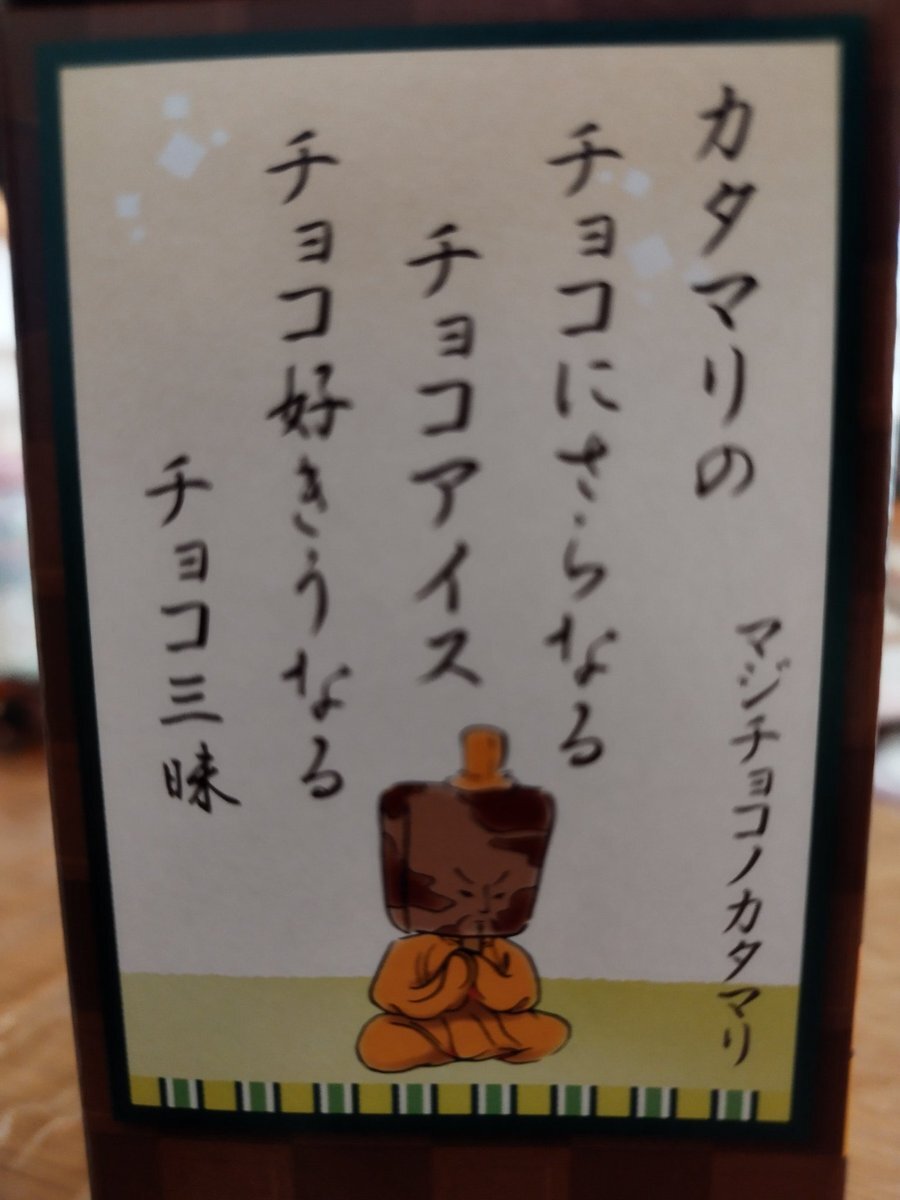 カタマリの
マジチョコノカタマリ
チョコにさらなる
チョコアイス
チョコ好きうなる
チョコ三昧